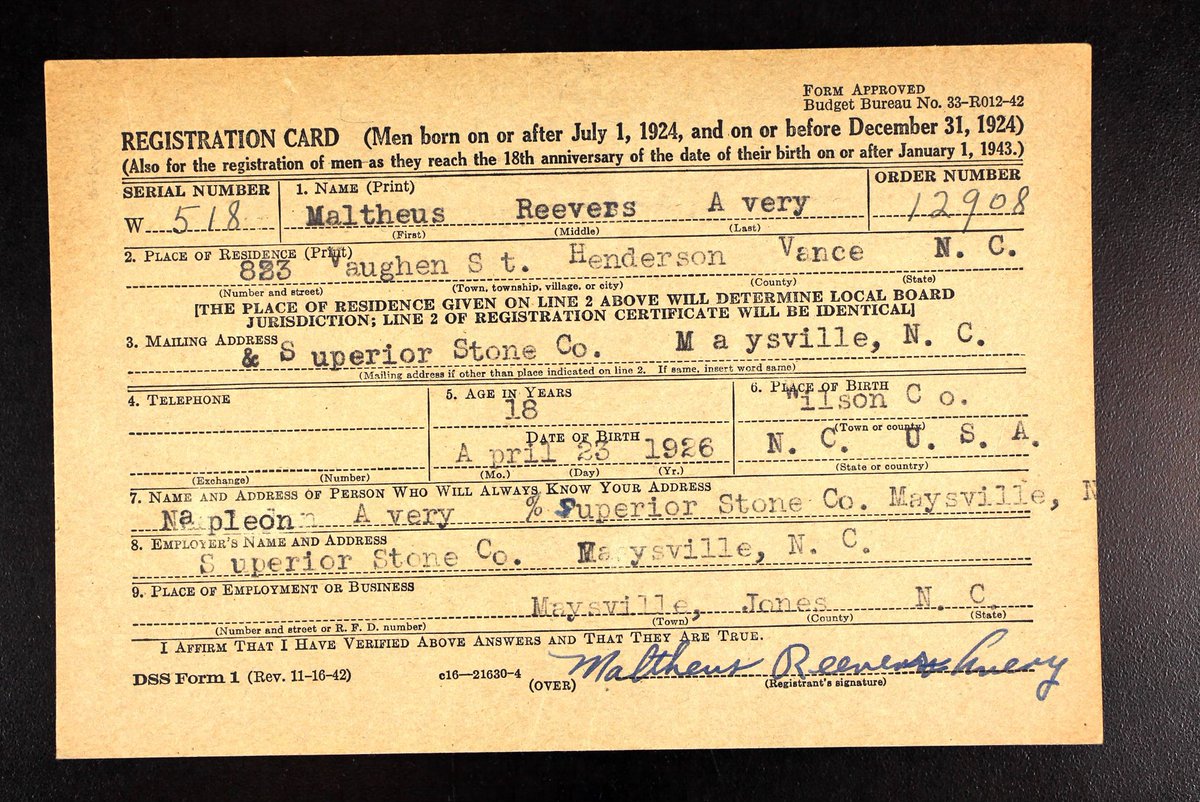 FORM APPROVED
Budget Bureau No. 33-R012-42
REGISTRATION CARD (Men born on or after July 1, 1924, and on or before December 31, 1924)
(Also for the registration of men as they reach the 18th anniversary of the date of their birth on or after January 1, 1943.)
SERIAL NUMBER 1. NAME (Print) ORDER NUMBER
W 518 Maltheus Reevers A very 12908
(First) (Middle) (Last)
2. PLACE OF RESIDENCE (Print)
823 Vaughen S t. Henderson Vance N. C.
(Number and street) (Town, township, village, or city) (County) (State)
[THE PLACE OF RESIDENCE GIVEN ON LINE 2 ABOVE WILL DETERMINE LOCAL BOARD
JURISDICTION; LINE 2 OF REGISTRATION CERTIFICATE WILL BE IDENTICAL]
3. MAILING ADDRESS
& S uperior Stone Co. M a ysville, N. C.
(Mailing address if other than place indicated on line 2. If same, insert word same)
4. TELEPHONE 5. AGE IN YEARS 6. PLACE OF BIRTH
18 Wilson C o.
DATE OF BIRTH (Town or county)
A pril 23 1926 N. C. U. S. A.
(Exchange) (Number) (Mo.) (Day) (Yr.) (State or country)
7. NAME AND ADDRESS OF PERSON WHO WILL ALWAYS KNOW YOUR ADDRESS
Napleon A very % Superior Stone Co. Maysville, N
8. EMPLOYER'S NAME AND ADDRESS
S uperior Stone Co. Maysville, N. C.
9. PLACE OF EMPLOYMENT OR BUSINESS
Maysville, Jones N. C.
(Number and street or R. F. D. number) (Town) (County) (State)
I AFFIRM THAT I HAVE VERIFIED ABOVE ANSWERS AND THAT THEY ARE TRUE.
DSS Form 1 (Rev. 11-16-42) c16—21630-4 (OVER) Maltheus Reevers Avery
(Registrant's signature)